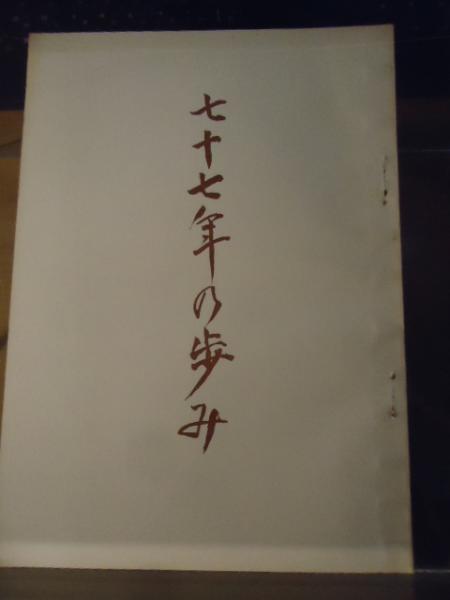 七十七年の歩み